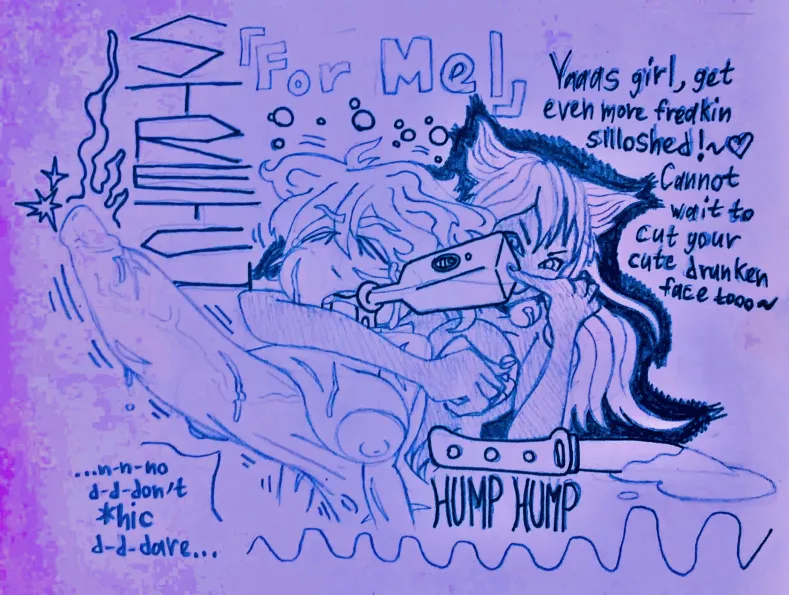 「For Me!」
Yaaas girl, get
even more freakin
slloshed!~♡
Cannot
wait to
cut your
cute drunken
face tooo~
...n-n-no
d-d-don't
*hic
d-d-dare...
HUMP HUMP